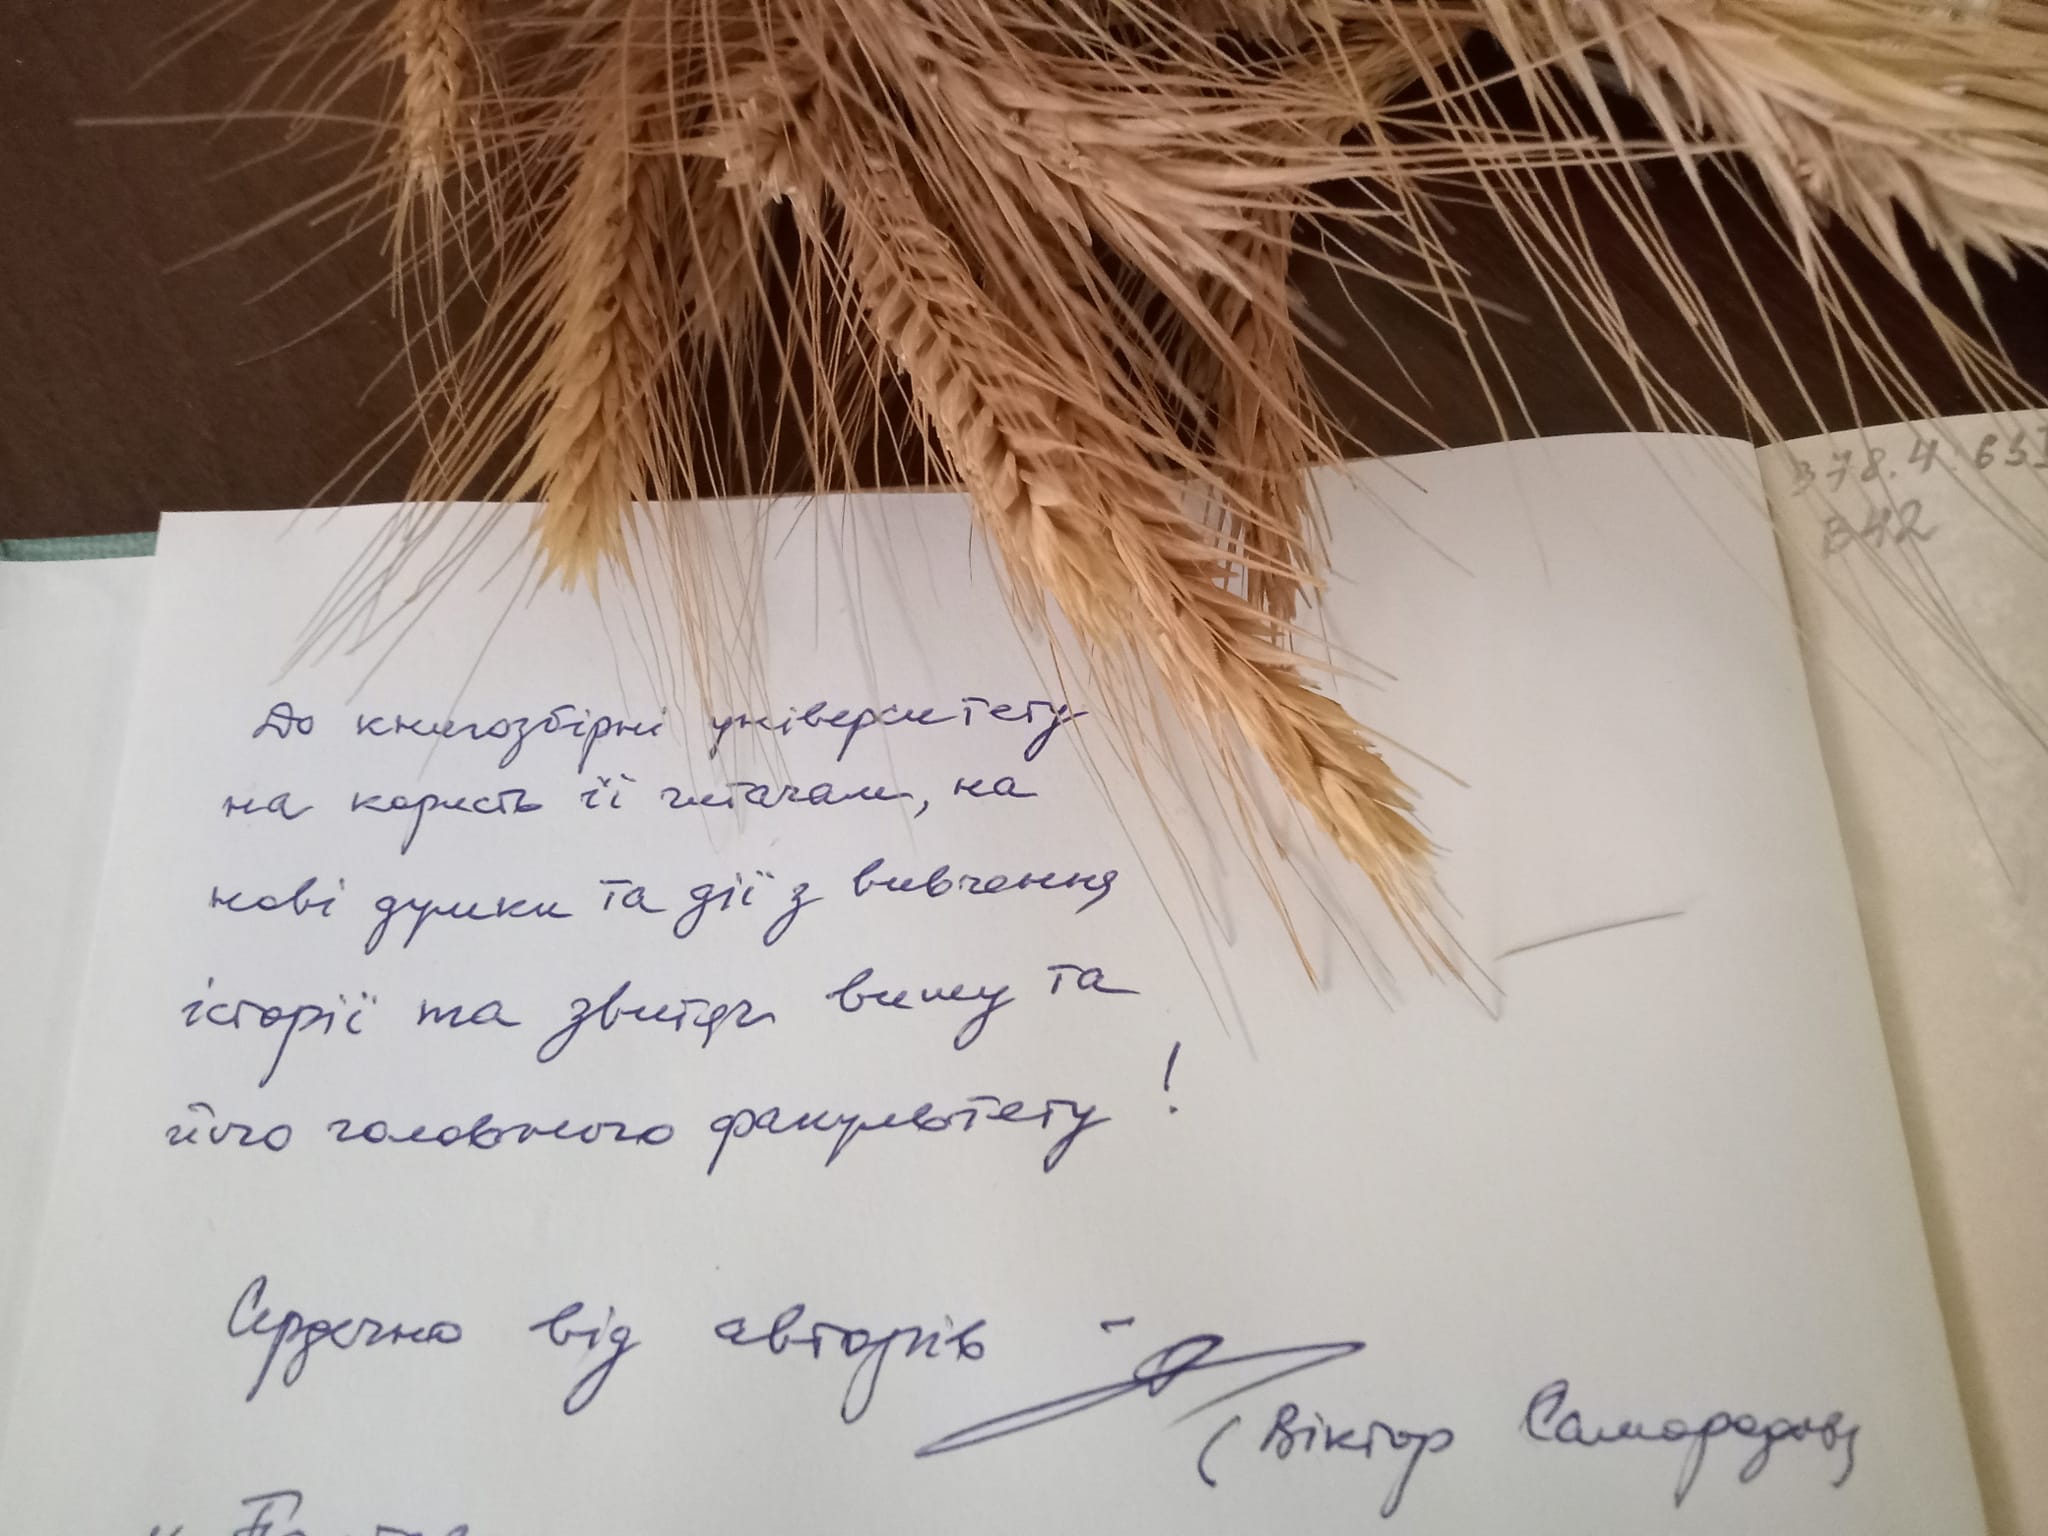 378.4:63
В42
До книгозбірні університету
на користь її читачам, на
нові думки та дії з вивчення
історії та звитяг вишу та
його головного факультету!
Сердечно від авторів -
(Віктор Самородов)